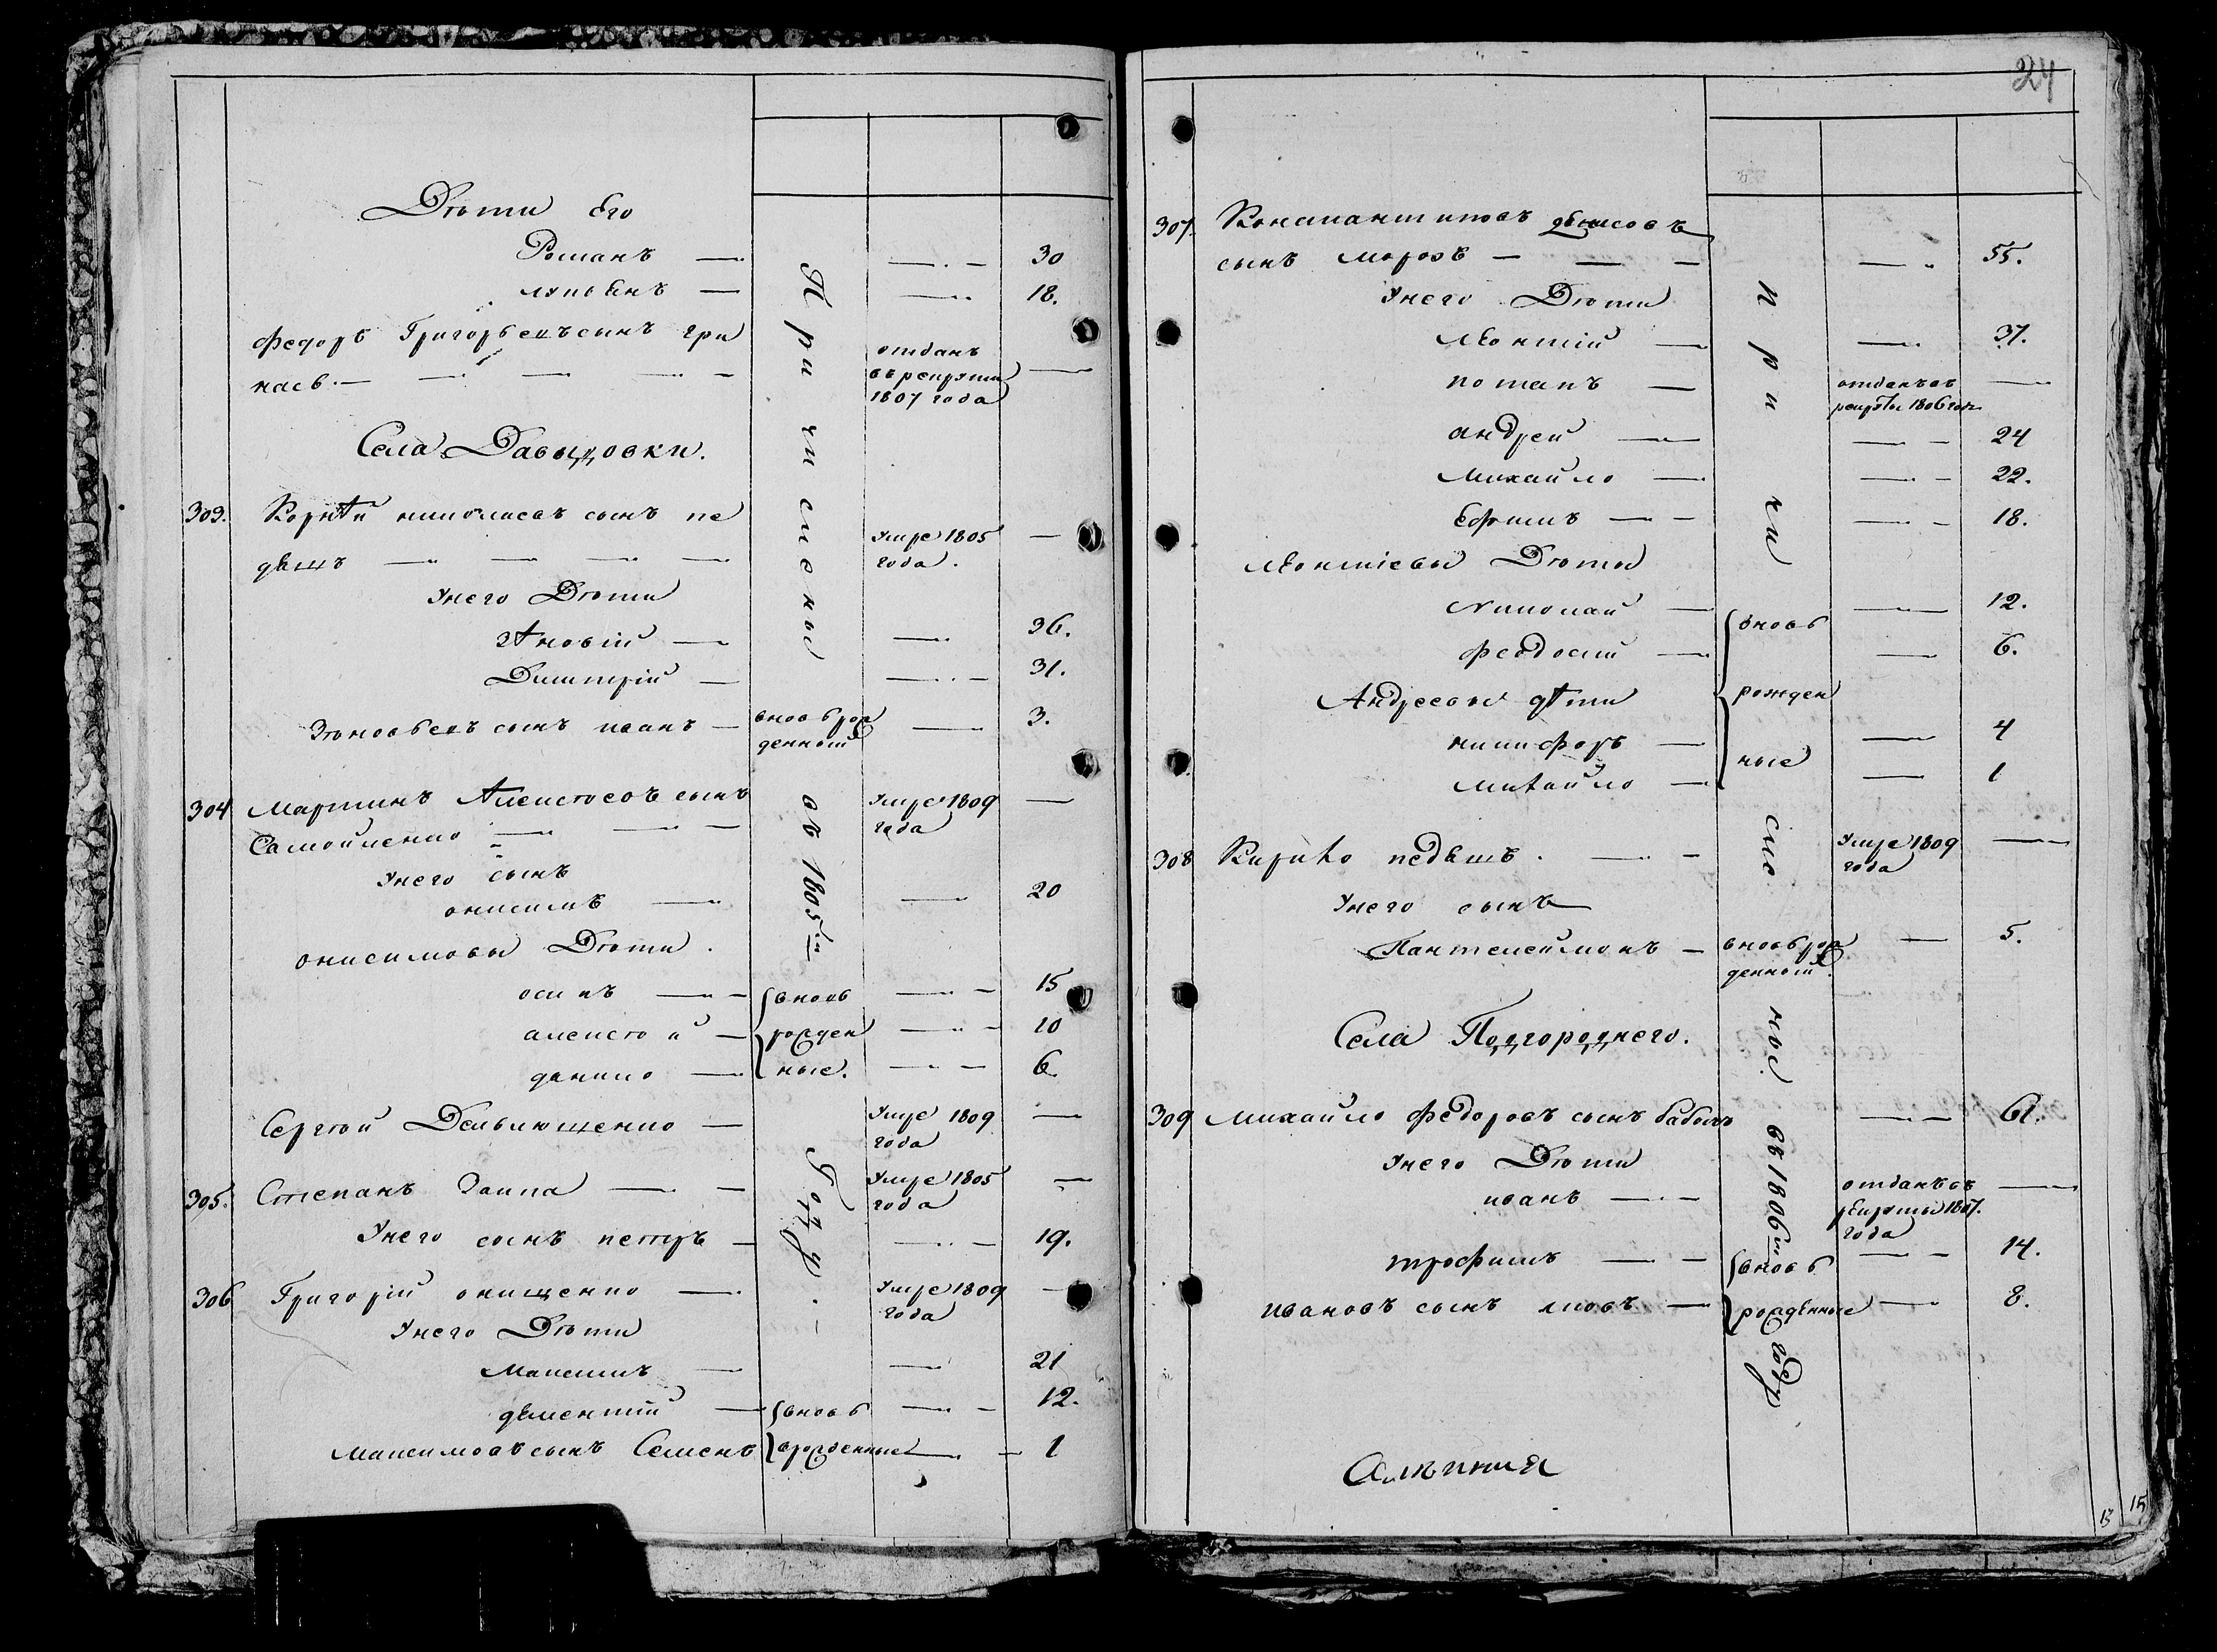 Дѣти его
Романъ — — 30
лукьянъ — — 18.
Федоръ Григорьевъ сынъ гри отданъ
насъ. — — — — — въ рекруты —
1807 года
Села Давыдовки.
303. Корнѣй николаевъ сынъ пе умре 1805 —
дѣшъ — — — — года.
У него Дѣти
зѣновій — — 36.
Дмитрій — — 31.
Зѣновьевъ сынъ иванъ — вновь рож — 3.
денный
304 Мартинъ Алексѣевъ сынъ умре 1809 —
Самойленко — — — года
У него сынъ
онисимъ — — 20
онисимовы Дѣти.
осипъ — вновь — 15
алексѣй — рожден — 10
данило — ные. — 6
Сергѣй — умре 1809 —
года
305. Степанъ Заика — — умре 1805 —
года
У него сынъ петръ — — 19.
306 Григорій онищенко — умре 1809 —
года
У него Дѣти
Максимъ — — 21
дѣментій — вновь — 12.
Максимовъ сынъ Семенъ врожденные — 1
Причисленые
въ 1805м
Году. —
24
307. Константиновъ денисовъ
сынъ морозъ — — — — 55.
У него Дѣти
леонтій — — 37.
потапъ — отданъ въ —
рекруты 1806 года
андрей — — 24
Михайло — — 22.
Ефимъ — — 18.
леонтіевы Дѣти
николай — вновь — 12.
феодосій — — 6.
Андреевы дѣти рожден
никифоръ — — 4
михайло — ные — 1
308 Кирико педѣшъ. — — умре 1809 —
года
У него сынъ
Пантелеймонъ — вновь рож — 5.
денный.
Села Подгороднего.
309 Михайло федоровъ сынъ бабакъ — 61.
У него Дѣти
иванъ — — отданъ въ —
рекруты 1807.
года
трофимъ — — вновь — 14.
ивановъ сынъ яковъ — рожденные — 8.
Причисленые
въ 1806м
году
15